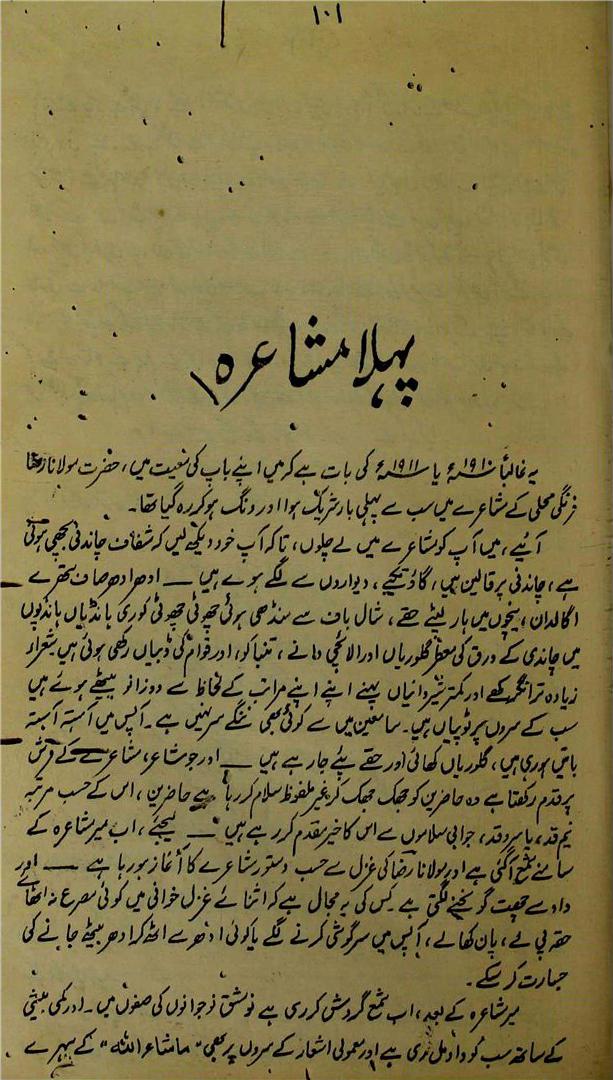 ۱۰۱
پہلا مشاعرہ
یہ غالباً ۱۹۱۰ء یا ۱۹۱۱ء کی بات ہے کہ میں اپنے باپ کی معیت میں، حضرت مولانا رضا
فرنگی محلی کے مشاعرے میں سب سے پہلی بار شریک ہوا اور دنگ ہو کر رہ گیا تھا۔
آئیے، میں آپ کو مشاعرے میں لے چلوں، تاکہ آپ خود دیکھ لیں کہ شفاف چاندنی بچھی ہوئی
ہے، چاندنی پر قالین ہیں، گاؤ تکیے، دیواروں سے لگے ہوے ہیں — ادھر ادھر صاف ستھرے
اگالدان، پیچوں میں ہار لپٹے حقے، شال باف سے منڈھی ہوئی چھوٹی چھوٹی کوری ہانڈیاں ہانڈیوں
میں چاندی کے ورق کی معطر گلوریاں اور الائچی دانے، تنباکو، اور قوام کی ڈبیاں رکھی ہوئی ہیں شعراء
زیادہ تر انگرکھے اور کمتر شیروانیاں پہنے اپنے اپنے مراتب کے لحاظ سے دوزانو بیٹھے ہوئے ہیں
سب کے سروں پر ٹوپیاں ہیں۔ سامعین میں سے کوئی بھی ننگے سر نہیں ہے۔ آپس میں آہستہ آہستہ
باتیں ہو رہی ہیں، گلوریاں کھائی اور حقے پئے جا رہے ہیں — اور جو شاعر، مشاعرے کے فرش
پر قدم رکھتا ہے وہ حاضرین کو جھک جھک کر غیر ملفوظ سلام کر رہا ہے حاضرین، اس کے حسب مرتبہ
نیم قد، یا سرو قد، جوابی سلاموں سے اس کا خیر مقدم کر رہے ہیں — لیجئے، اب میر مشاعرہ کے
سامنے شمع آگئی ہے اور مولانا رضا کی غزل سے حسب دستور مشاعرے کا آغاز ہو رہا ہے — اور
داد سے چھت گونجنے لگتی ہے۔ کس کی یہ مجال ہے کہ اثنائے غزل خوانی میں کوئی مصرع نہ اٹھائے
حقہ پی لے، پان کھا لے، آپس میں سرگوشی کرنے لگے یا کوئی ادھر سے اٹھ کر ادھر بیٹھے جانے کی
جسارت کر سکے۔
میر مشاعرہ کے بعد، اب شمع گردش کر رہی ہے نو مشق نوجوانوں کی صفوں میں۔ اور کمی بیشی
کے ساتھ سب کو داد مل رہی ہے اور معمولی اشعار کے سروں پر بھی "ماشاء اللہ" کے سہرے